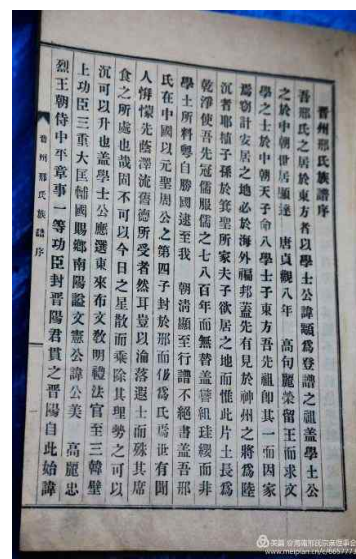 晋州邢氏族譜序
吾邢氏之居於東方者以學士公諱顒為登譜之祖蓋學士公
之於中朝世居顯達 唐貞觀八年 高句麗榮留王而求文
學之士於中朝天子命八學士于東方吾先祖即其一而因家
焉窃計安居之地必於海外福邦蓋先有見於神州之將為陸
沉者耶植子孫於箕聖所家夫子欲居之地而惟此片土長為
乾淨使吾先冠儒服儒之七八百年而無替蓋簪組珪綬而非
學士所料粤自勝國逮至我 朝清顯至行譜不絕書蓋吾邢
氏在中國以元聖周公之第四子封於邢而仍為氏焉世有聞
人懞先蔭澤流德所受者然耳豈以淪落遐土而殊其席
食之所處也哉固不可以今日之星散而乘除其理勢之可以
沉可以升也蓋學士公應選東來布文敎明禮法官至三韓壁
上功臣三重大匡輔國賜鄉南陽諡文憲公諱公美 高麗忠
烈王朝侍中平章事一等功臣封晋陽君貫之晋陽自此始諱
晋州邢氏族譜序